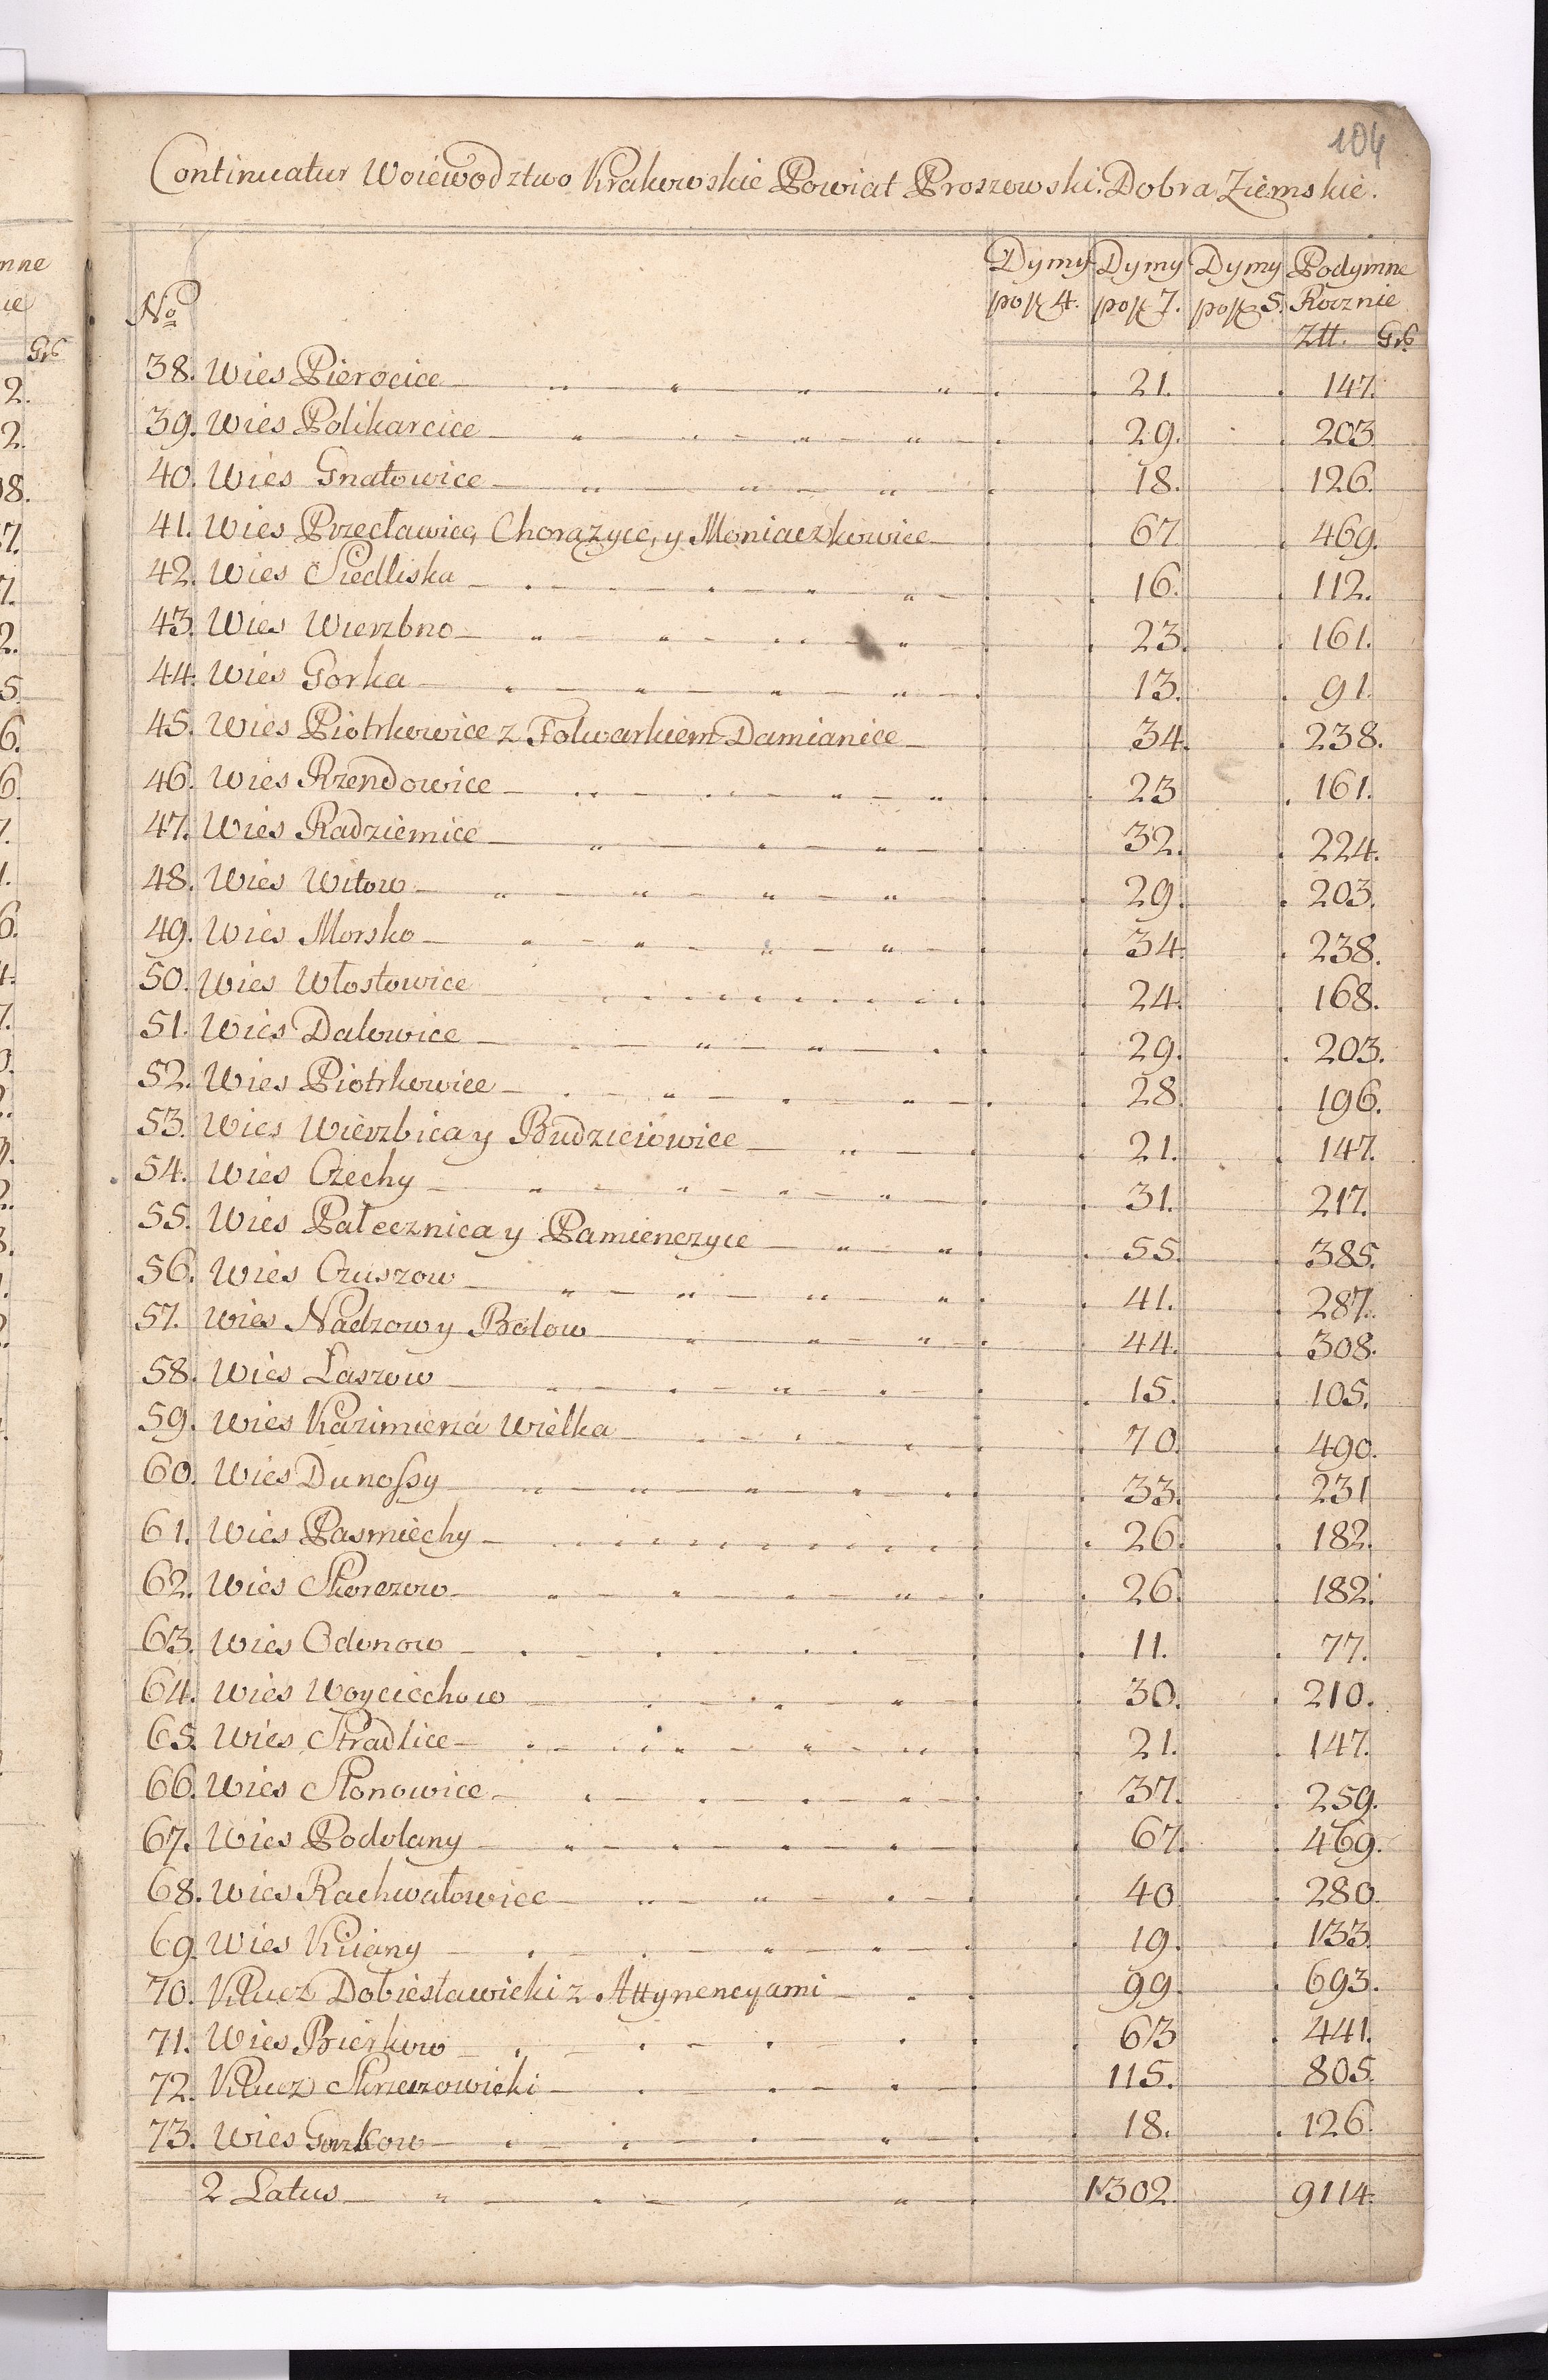 104
Continuatur Woiewodztwo Krakowskie Powiat Proszowski. Dobra Ziemskie.
No Dymy po fl 4. Dymy po fl 7. Dymy po fl 5. Podymne Rocznie Złł. Gr.
38. Wies Pierocice 21. 147.
39. Wies Polikarcice 29. 203
40. Wies Gnatowice 18. 126.
41. Wies Przecławice, Chorązyce, y Moniaczkowice 67 469.
42. Wies Siedliska 16. 112.
43. Wies Wierzbno 23. 161.
44. Wies Gorka 13. 91.
45. Wies Piotrkowice z Folwarkiem Damianice 34. 238.
46. Wies Rzendowice 23 161.
47. Wies Radziemice 32. 224.
48. Wies Witow 29. 203.
49. Wies Morsko 34 238.
50. Wies Włostowice 24. 168.
51. Wies Dalowice 29. 203.
52. Wies Piotrkowice 28. 196.
53. Wies Wierzbica y Budzieiowice 21. 147.
54. Wies Czechy 31. 217.
55. Wies Pałecznica y Pamienczyce 55. 385.
56. Wies Czuszow 41. 287.
57. Wies Nadzow y Bolow 44. 308.
58. Wies Laszow 15. 105.
59. Wies Kazimierza Wielka 70. 490.
60. Wies Dunossy 33. 231
61. Wies Pasmiechy 26. 182.
62. Wies Skorczow 26. 182.
63. Wies Odonow 11. 77.
64. Wies Woyciechow 30. 210.
65. Wies Stradlice 21. 147.
66. Wies Słonowice 37. 259.
67. Wies Podolany 67. 469.
68. Wies Rachwałowice 40 280.
69. Wies Kiiany 19. 133.
70. Klucz Dobiesławicki z Attynencyami 99. 693.
71. Wies Bierkow 63 441.
72. Klucz Skrzeszowicki 115. 805.
73. Wies Gorzkow 18. 126.
2 Latus 1302. 9114.